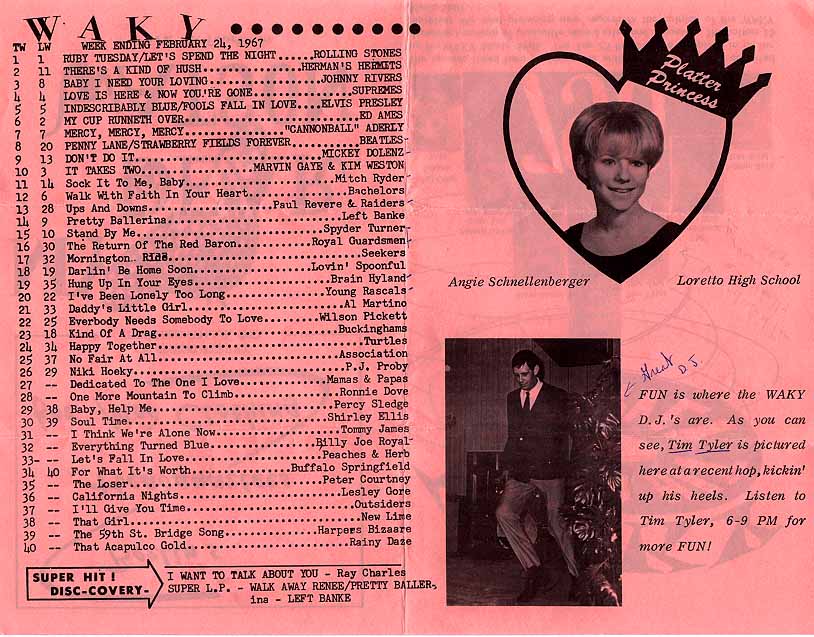 WAKY
TW LW WEEK ENDING FEBRUARY 24, 1967
1 1 RUBY TUESDAY/LET'S SPEND THE NIGHT.....ROLLING STONES
2 11 THERE'S A KIND OF HUSH..............HERMAN'S HERMITS
3 8 BABY I NEED YOUR LOVING................JOHNNY RIVERS
4 4 LOVE IS HERE & NOW YOU'RE GONE..............SUPREMES
5 5 INDESCRIBABLY BLUE/FOOLS FALL IN LOVE....ELVIS PRESLEY
6 2 MY CUP RUNNETH OVER.........................ED AMES
7 7 MERCY, MERCY, MERCY................"CANNONBALL" ADERLY
8 20 PENNY LANE/STRAWBERRY FIELDS FOREVER.........BEATLES
9 13 DON'T DO IT............................MICKEY DOLENZ
10 3 IT TAKES TWO................MARVIN GAYE & KIM WESTON
11 14 Sock It To Me, Baby......................Mitch Ryder
12 6 Walk With Faith In Your Heart..............Bachelors
13 28 Ups And Downs..................Paul Revere & Raiders
14 9 Pretty Ballerina..........................Left Banke
15 10 Stand By Me............................Spyder Turner
16 30 The Return Of The Red Baron..........Royal Guardsmen
17 32 Mornington.. Ride............................Seekers
18 19 Darlin' Be Home Soon.................Lovin' Spoonful
19 35 Hung Up In Your Eyes....................Brain Hyland
20 22 I've Been Lonely Too Long..............Young Rascals
21 33 Daddy's Little Girl........................Al Martino
22 25 Everbody Needs Somebody To Love.......Wilson Pickett
23 18 Kind Of A Drag..........................Buckinghams
24 34 Happy Together...............................Turtles
25 37 No Fair At All...........................Association
26 29 Niki Hoeky................................P.J. Proby
27 -- Dedicated To The One I Love............Mamas & Papas
28 -- One More Mountain To Climb...............Ronnie Dove
29 38 Baby, Help Me...........................Percy Sledge
30 39 Soul Time..............................Shirley Ellis
31 -- I Think We're Alone Now..................Tommy James
32 -- Everything Turned Blue...............Billy Joe Royal
33-- -- Let's Fall In Love....................Peaches & Herb
34 40 For What It's Worth...............Buffalo Springfield
35 -- The Loser.............................Peter Courtney
36 -- California Nights........................Lesley Gore
37 -- I'll Give You Time.........................Outsiders
38 -- That Girl...................................New Lime
39 -- The 59th St. Bridge Song..............Harpers Bizaare
40 -- That Acapulco Gold........................Rainy Daze
SUPER HIT!
DISC-COVERY-
I WANT TO TALK ABOUT YOU - Ray Charles
SUPER L.P. - WALK AWAY RENEE/PRETTY BALLER-
ina - LEFT BANKE
Platter
Princess
Angie Schnellenberger Loretto High School
Guest D.J.
FUN is where the WAKY
D.J.'s are. As you can
see, Tim Tyler is pictured
here at a recent hop, kickin'
up his heels. Listen to
Tim Tyler, 6-9 PM for
more FUN!